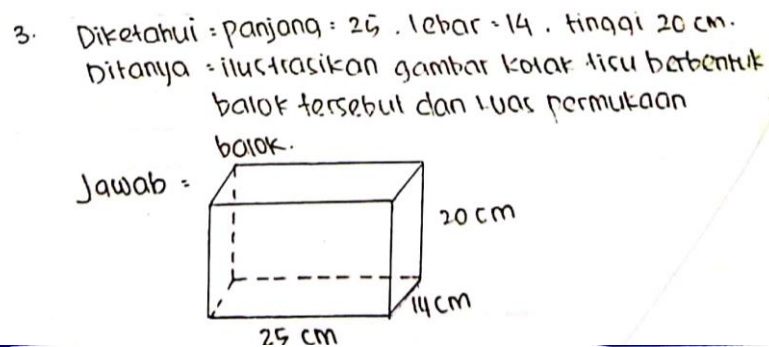 3. Diketahui : panjang : 25 . lebar : 14 . tinggi 20 cm.
Ditanya : ilustrasikan gambar kotak tisu berbentuk
balok tersebut dan luas permukaan
balok.
Jawab :
20 cm
14 cm
25 cm